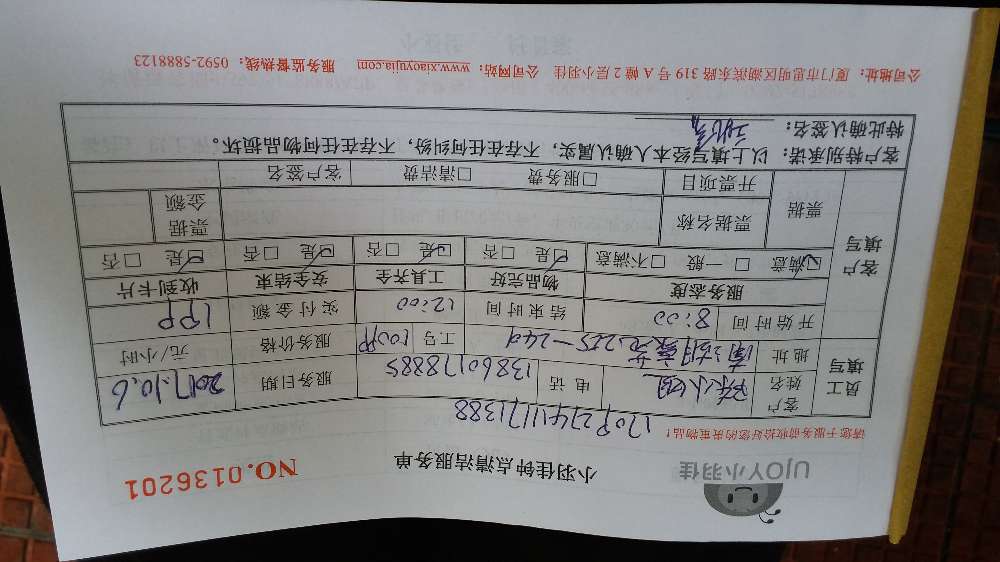 UjOY小羽佳
小羽佳钟点清洁服务单
NO.0136201
请您于服务前收拾好您的贵重物品!
员工填写
客户姓名 陈小姐 电话 13860178885 服务日期 2017.10.6
地址 工号 服务价格 元/小时
客户填写
开始时间 8:00 结束时间 12:00 实付金额
服务态度 物品完好 工具齐全 安全结束 收到卡片
☑满意 □一般 □不满意 ☑是 □否 ☑是 □否 ☑是 □否 ☑是 □否
票据 票据名称 票据金额
开票项目 □服务费 □清洁费 客户签名
客户特别承诺:以上填写经本人确认属实,不存在任何纠纷,不存在任何物品损坏。
特此确认签名:
公司地址:厦门市思明区湖滨东路 319 号 A 幢 2 层小羽佳 公司网站:www.xiaoyujia.com 服务监督热线:0592-5888123